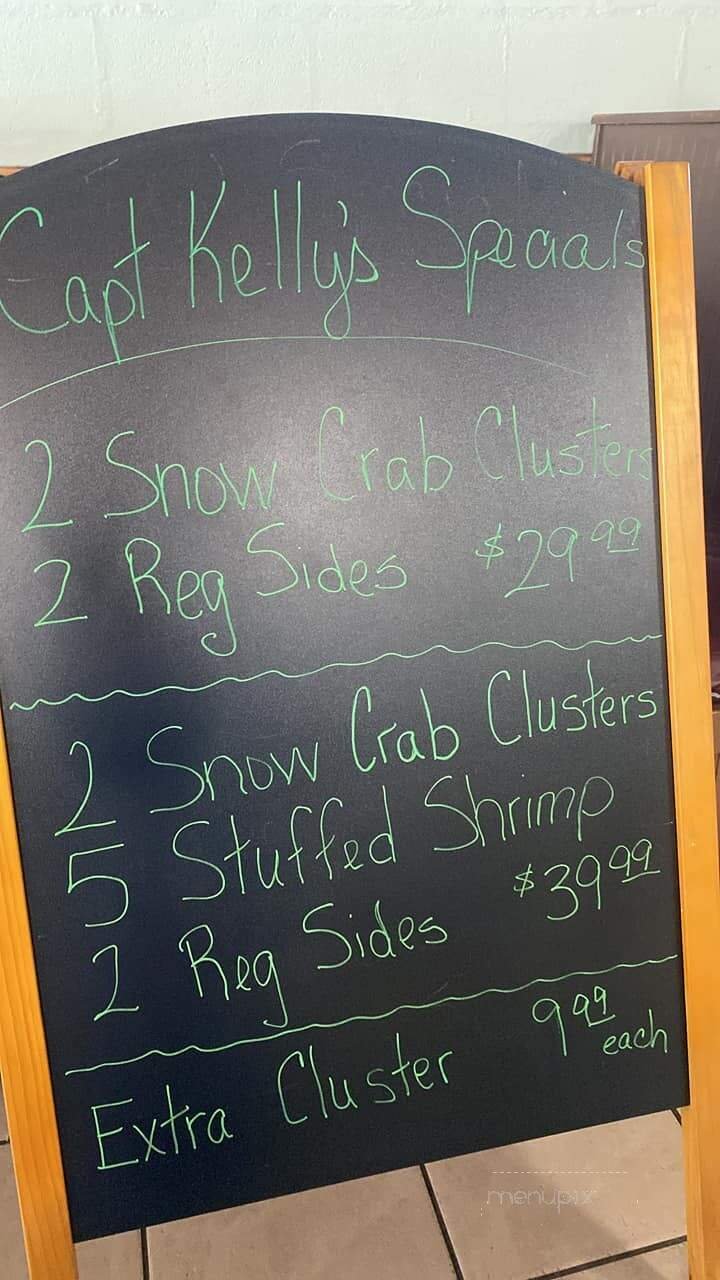 Capt Kelly's Specials
2 Snow Crab Clusters
2 Reg Sides $29.99
2 Snow Crab Clusters
5 Stuffed Shrimp
2 Reg Sides $39.99
Extra Cluster 9.99 each
menupix